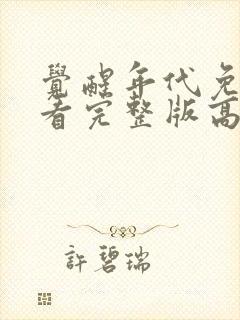 覺醒年代免
看完整版高
許碧瑞